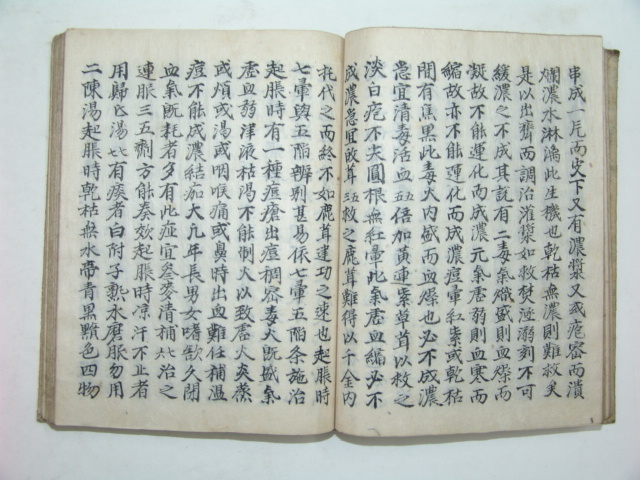 串成一片而皮下又有濃漿又或疤容而潰
爛濃水淋漓此生機也乾枯無濃則難救矣
是以出齊而調治灌漿如救焚拯溺刻不可
緩濃之不成其說有二毒氣熾盛則血燥而
凝故不能運化而成濃元氣虛弱則血寒而
縮故亦不能運化而成濃痘暈紅紫或乾枯
間有焦黑此毒火內盛而血燥也必不成濃
急宜清毒活血五五倍加黃連紫草茸以救之
淡白疱不尖圓根無紅暈此氣虛血縮必不
成濃急宜敢茸五五救之鹿茸難得以千金內
托代之而終不如鹿茸建功之速也起脹時
七暈與五陷辨別甚易依七暈五陷条施治
起脹時有一種痘瘡出痘稠密毒火既盛氣
虛血弱津液枯渴不能制火以致虛火炎蒸
或煩或渴或咽喉痛或鼻時出血難任補溫
痘不能成濃結痂大凡年長男女嗜慾久閉
血氣既耗者多有此症宜參麥清補比治之
連服三五劑方能奏效起脹時凉汗不止者
用歸芪湯比有痰者白附子熱水磨服勿用
二陳湯起脹時乾枯無水帶青黑黯色四物